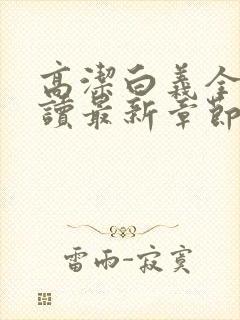 高潔白義全
讀最新章節
雷雨-寂寞